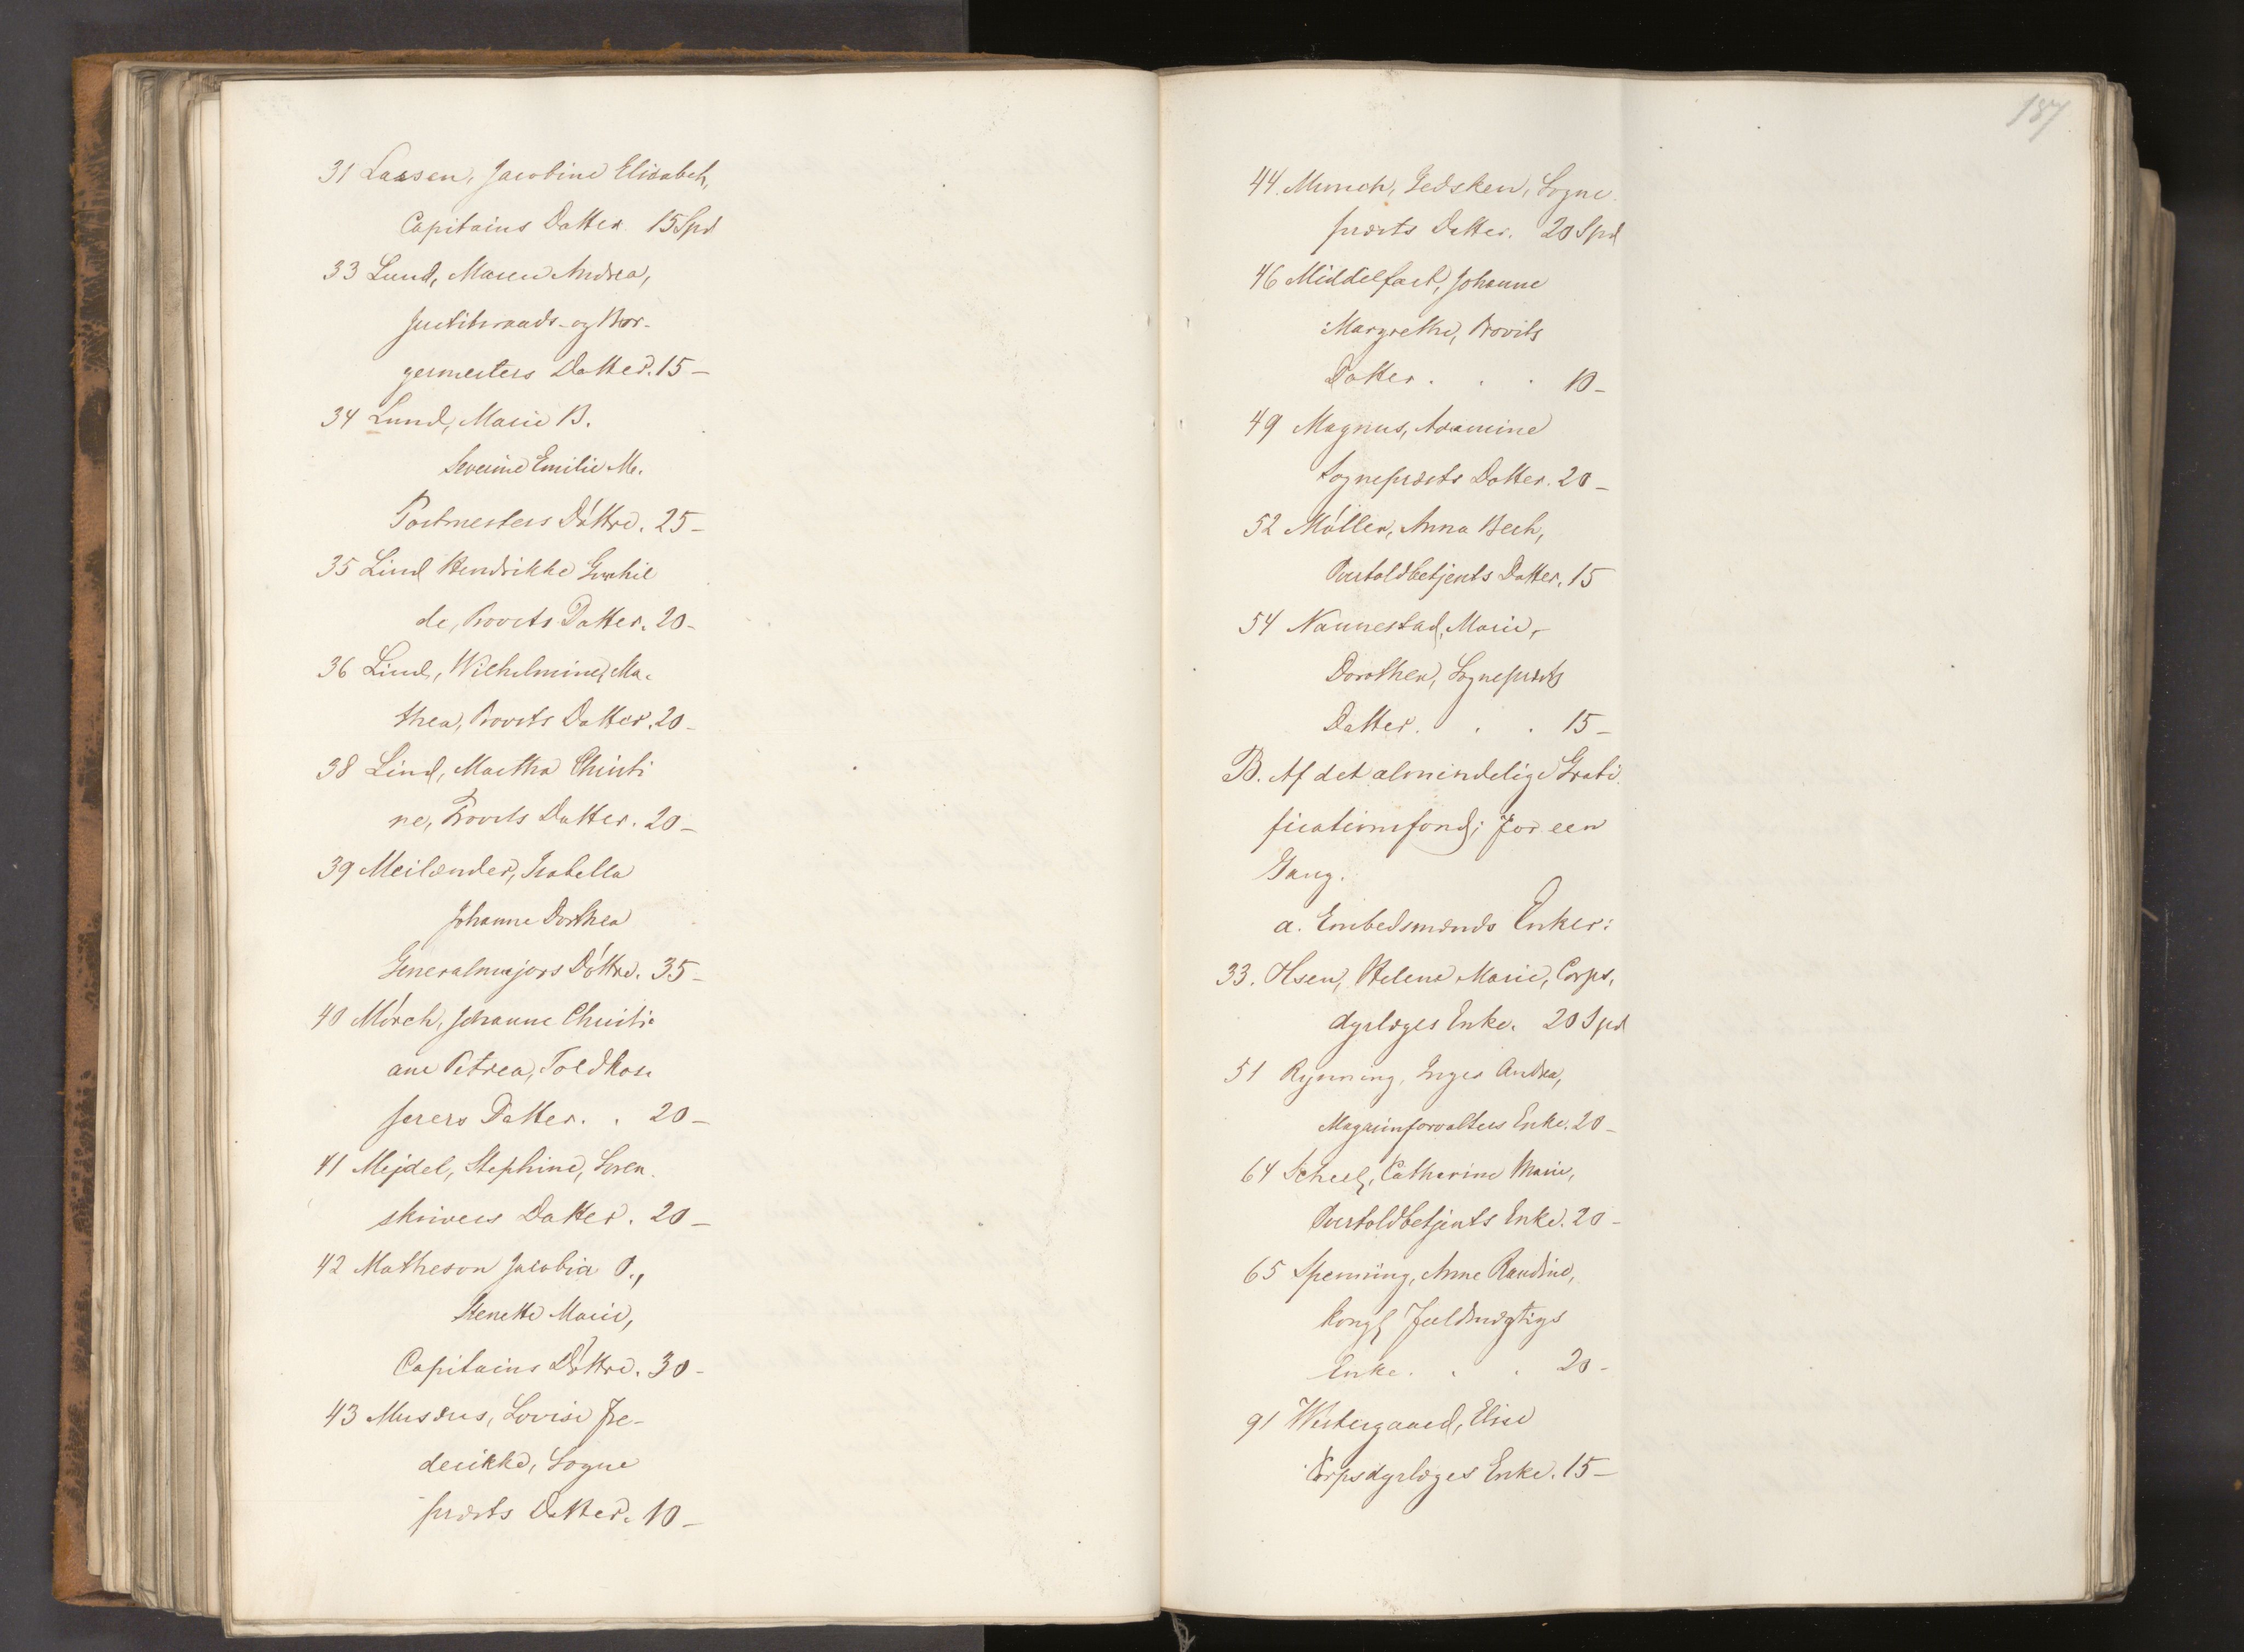 31 Lassen, Jacobine Elisabeth,
Capitains Datter 15 Spd
33 Lund, Maren Andrea,
Justitsraads- og Bor-
germesters Datter. 15 -
34 Lund, Marie B.
Severine Emilie M.
Postmesters Döttre. 25 -
35 Lind Hendrikke Gunhil
de, Provsts Datter. 20 -
36 Lind, Wilhelmine Ma-
thea, Provsts Datter. 20 -
38 Lind, Martha Christi
ne, Provsts Datter. 20 -
39 Meilænder, Isabella
Johanne Dorthea
Generalmajors Döttre. 35 -
40 Mörch, Johanne Christi-
ane Petrea, Toldkas-
serers Datter. . 20 -
41 Mejdel, Stephine, Soren-
skrivers Datter. 20 -
42 Matheson Jacobia O.,
Henette Marie,
Capitains Döttre. 30 -
43 Musæus, Lovise Fre-
derikke, Sogne
præsts Datter. 10 -
187
44. Munch, Jedsken, Sogne
præsts Datter. 20 Spd
46 Middelfart, Johanne
Margrethe, Provsts
Datter . . . 10 -
49 Magnus, Adamine
Sognepræsts Datter. 20 -
52 Möller, Anna Bech,
Overtoldbetjents Datter. 15
54 Nannestad, Marie,
Dorothea, Sognepræsts
Datter. . . 15 -
B. Af det almindelige Grati
ficationsfond; for een
Gang.
a. Embedsmænds Enker:
33. Olsen, Helene Marie, Corps,
dyrlæges Enke. 20 Spd
51 Rynning, Inger Andrea,
Magasinforvalters Enke. 20 -
64 Scheel, Catharine Marie,
Overtoldbetjents Enke. 20 -
65 Spenning, Anne Randine,
kongl Fuldmægtigs
Enke. . . 20 -
91 Westergaard, Elise
Corpsdyrlæges Enke. 15 -